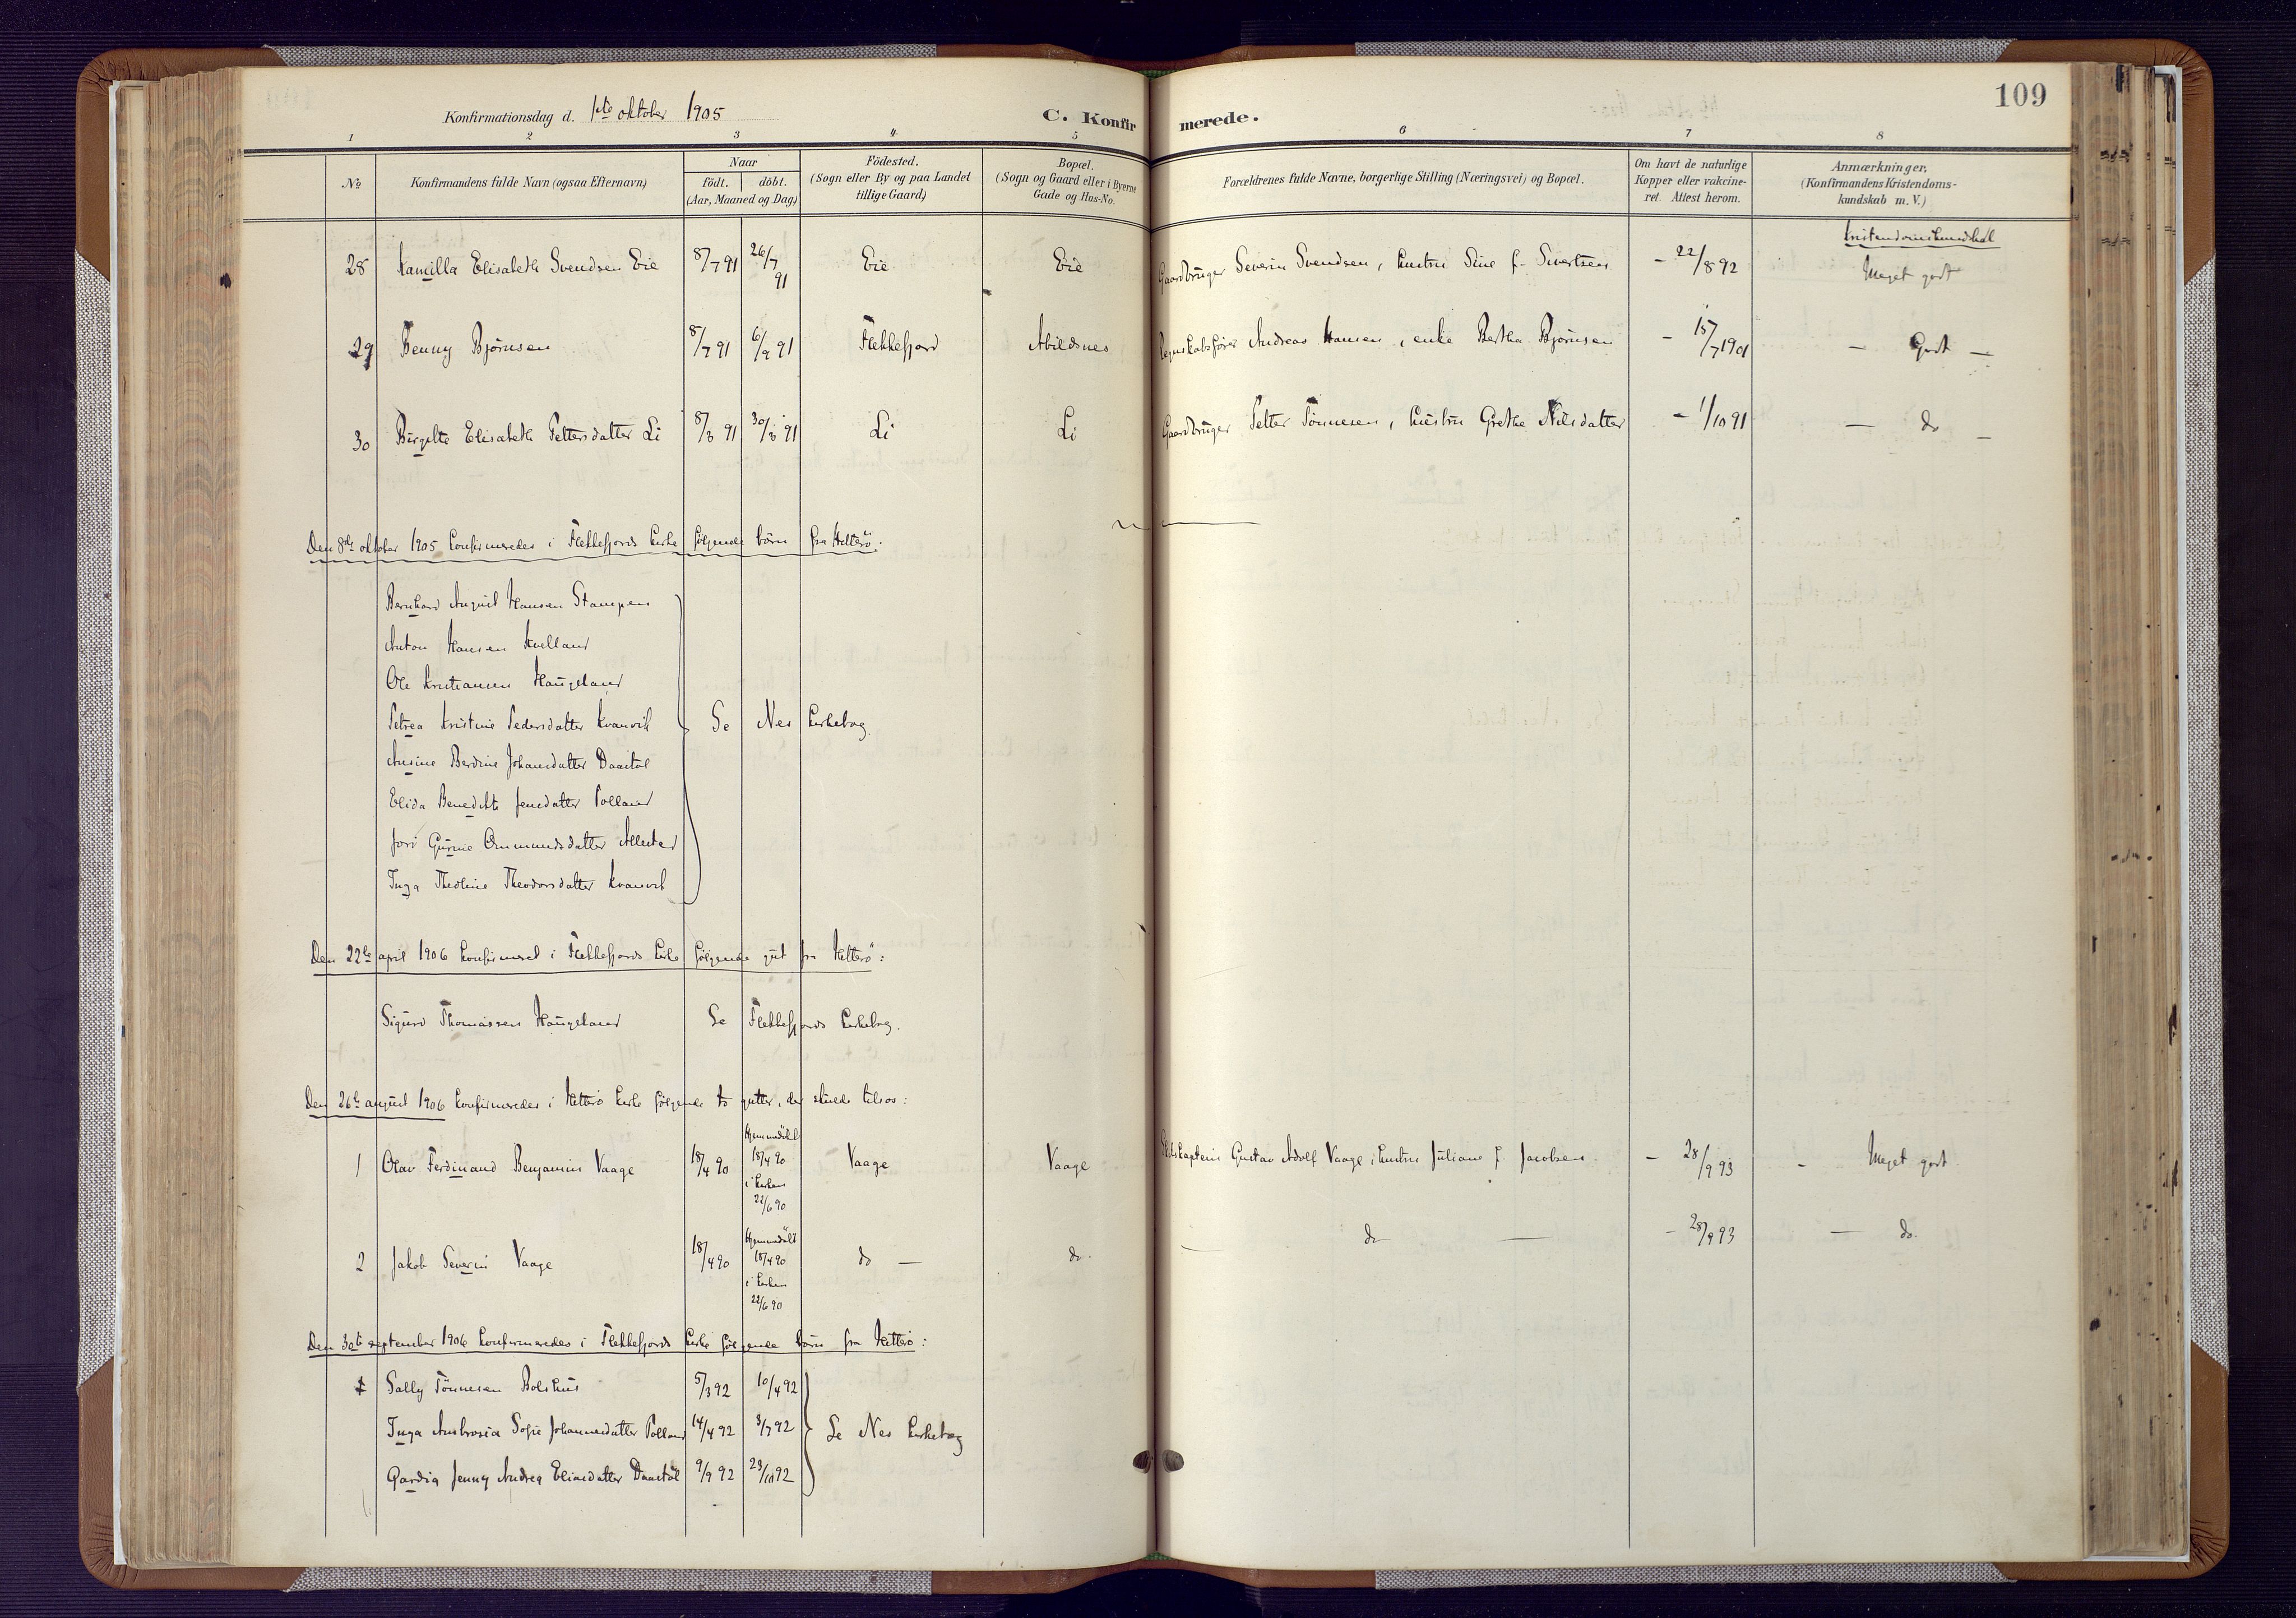 109
Konfirmationsdag d. 1ste oktober 1905
C. Konfirmerede.
1 2 3 4 5 6 7 8
No
Konfirmandens fulde Navn (ogsaa Efternavn)
Naar
födt. döbt.
(Aar, Maaned og Dag)
Födested.
(Sogn eller By og paa Landet
tillige Gaard)
Bopæl.
(Sogn og Gaard eller i Byerne
Gade og Hus-No.
Forældrenes fulde Navne, borgerlige Stilling (Næringsvei) og Bopæl.
Om havt de naturlige
Kopper eller vakcine-
ret. Attest herom.
Anmærkninger.
(Konfirmandens Kristendoms-
kundskab m. V.)
Kristendomskundskab
28 Kamilla Elisabeth Svendsen Eie 8/7 91 26/7 91 Eie Eie Gaardbruger Severin Svendsen, hustru Sine f. Sivertsen - 22/8 92 Meget godt
29 Benny Björnsen 8/7 91 6/9 91 Flekkefjord Abildsnes Regnskabsfører Andreas Hansen, enke Bertha Bjørnsen - 15/7 1901 — Godt —
30 Birgitte Elisabeth Pettersdatter Li 8/8 91 30/8 91 Li Li Gaardbruger Petter Tönnesen, hustru Grethe Nilsdatter - 1/10 91 — do —
Den 8de oktober 1905 konfirmeredes i Flekkefjords kirke følgende börn fra Hitterö:
Bernhard August Hansen Stampen
Anton Hansen Kvelland
Ole Kristiansen Haugeland
Petrea Kristine Pedersdatter Kvanvik Se Nes kirkebog
Ansine Berdine Johansdatter Daastöl
Elida Benedikte Jensdatter Polland
Jori Gurine Ommundsdatter
Inga Theoline Theodorsdatter Kvanvik
Den 22de april 1906 konfirmeret i Flekkefjords kirke følgende gut fra Hitterö:
Sigurd Thomassen Haugeland Se Flekkefjords kirkebog.
Den 26de august 1906 konfirmeredes i Hitterö kirke følgende to gutter, der skulde tilsøs:
1 Olav Ferdinand Benjamin Vaage 18/4 90 Hjemmedöbt 18/4 90 i kirken 22/6 90 Vaage Vaage Skibskaptein Gustav Adolf Vaage, hustru Juliane f. Jacobsen - 28/9 93 - Meget godt
2 Jakob Severin Vaage 18/4 90 Hjemmedöbt 18/4 90 i kirken 22/6 90 do — do. — do — - 28/9 93 — do.
Den 30te september 1906 konfirmeredes i Flekkefjords kirke følgende börn fra Hitterö:
Sally Tönnesen Bolshus 5/3 92 10/4 92
Inga Ambrosia Sofie Johannesdatter Polland 14/4 92 3/7 92 Se Nes kirkebog
Gardia Jenny Andrea Eliasdatter Daastöl 9/9 92 23/10 92